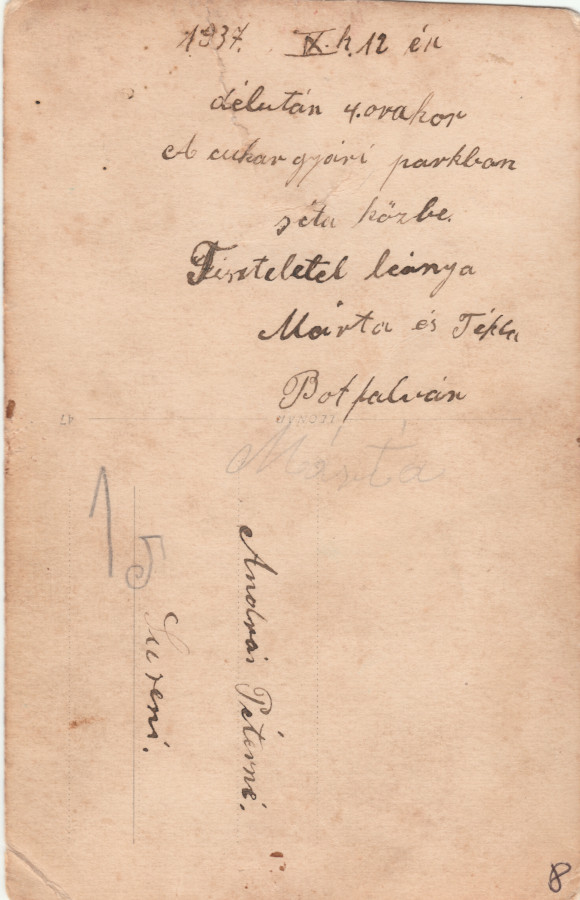 1937. IX. h. 12 én
délután 4. orakor
A cukor gyári parkban
séta közbe.
Tiszteletel leánya
Márta és Tékla
Botfalván
LEONAR
47
Márta
15
Andrási Péterné.
Sureni.
8